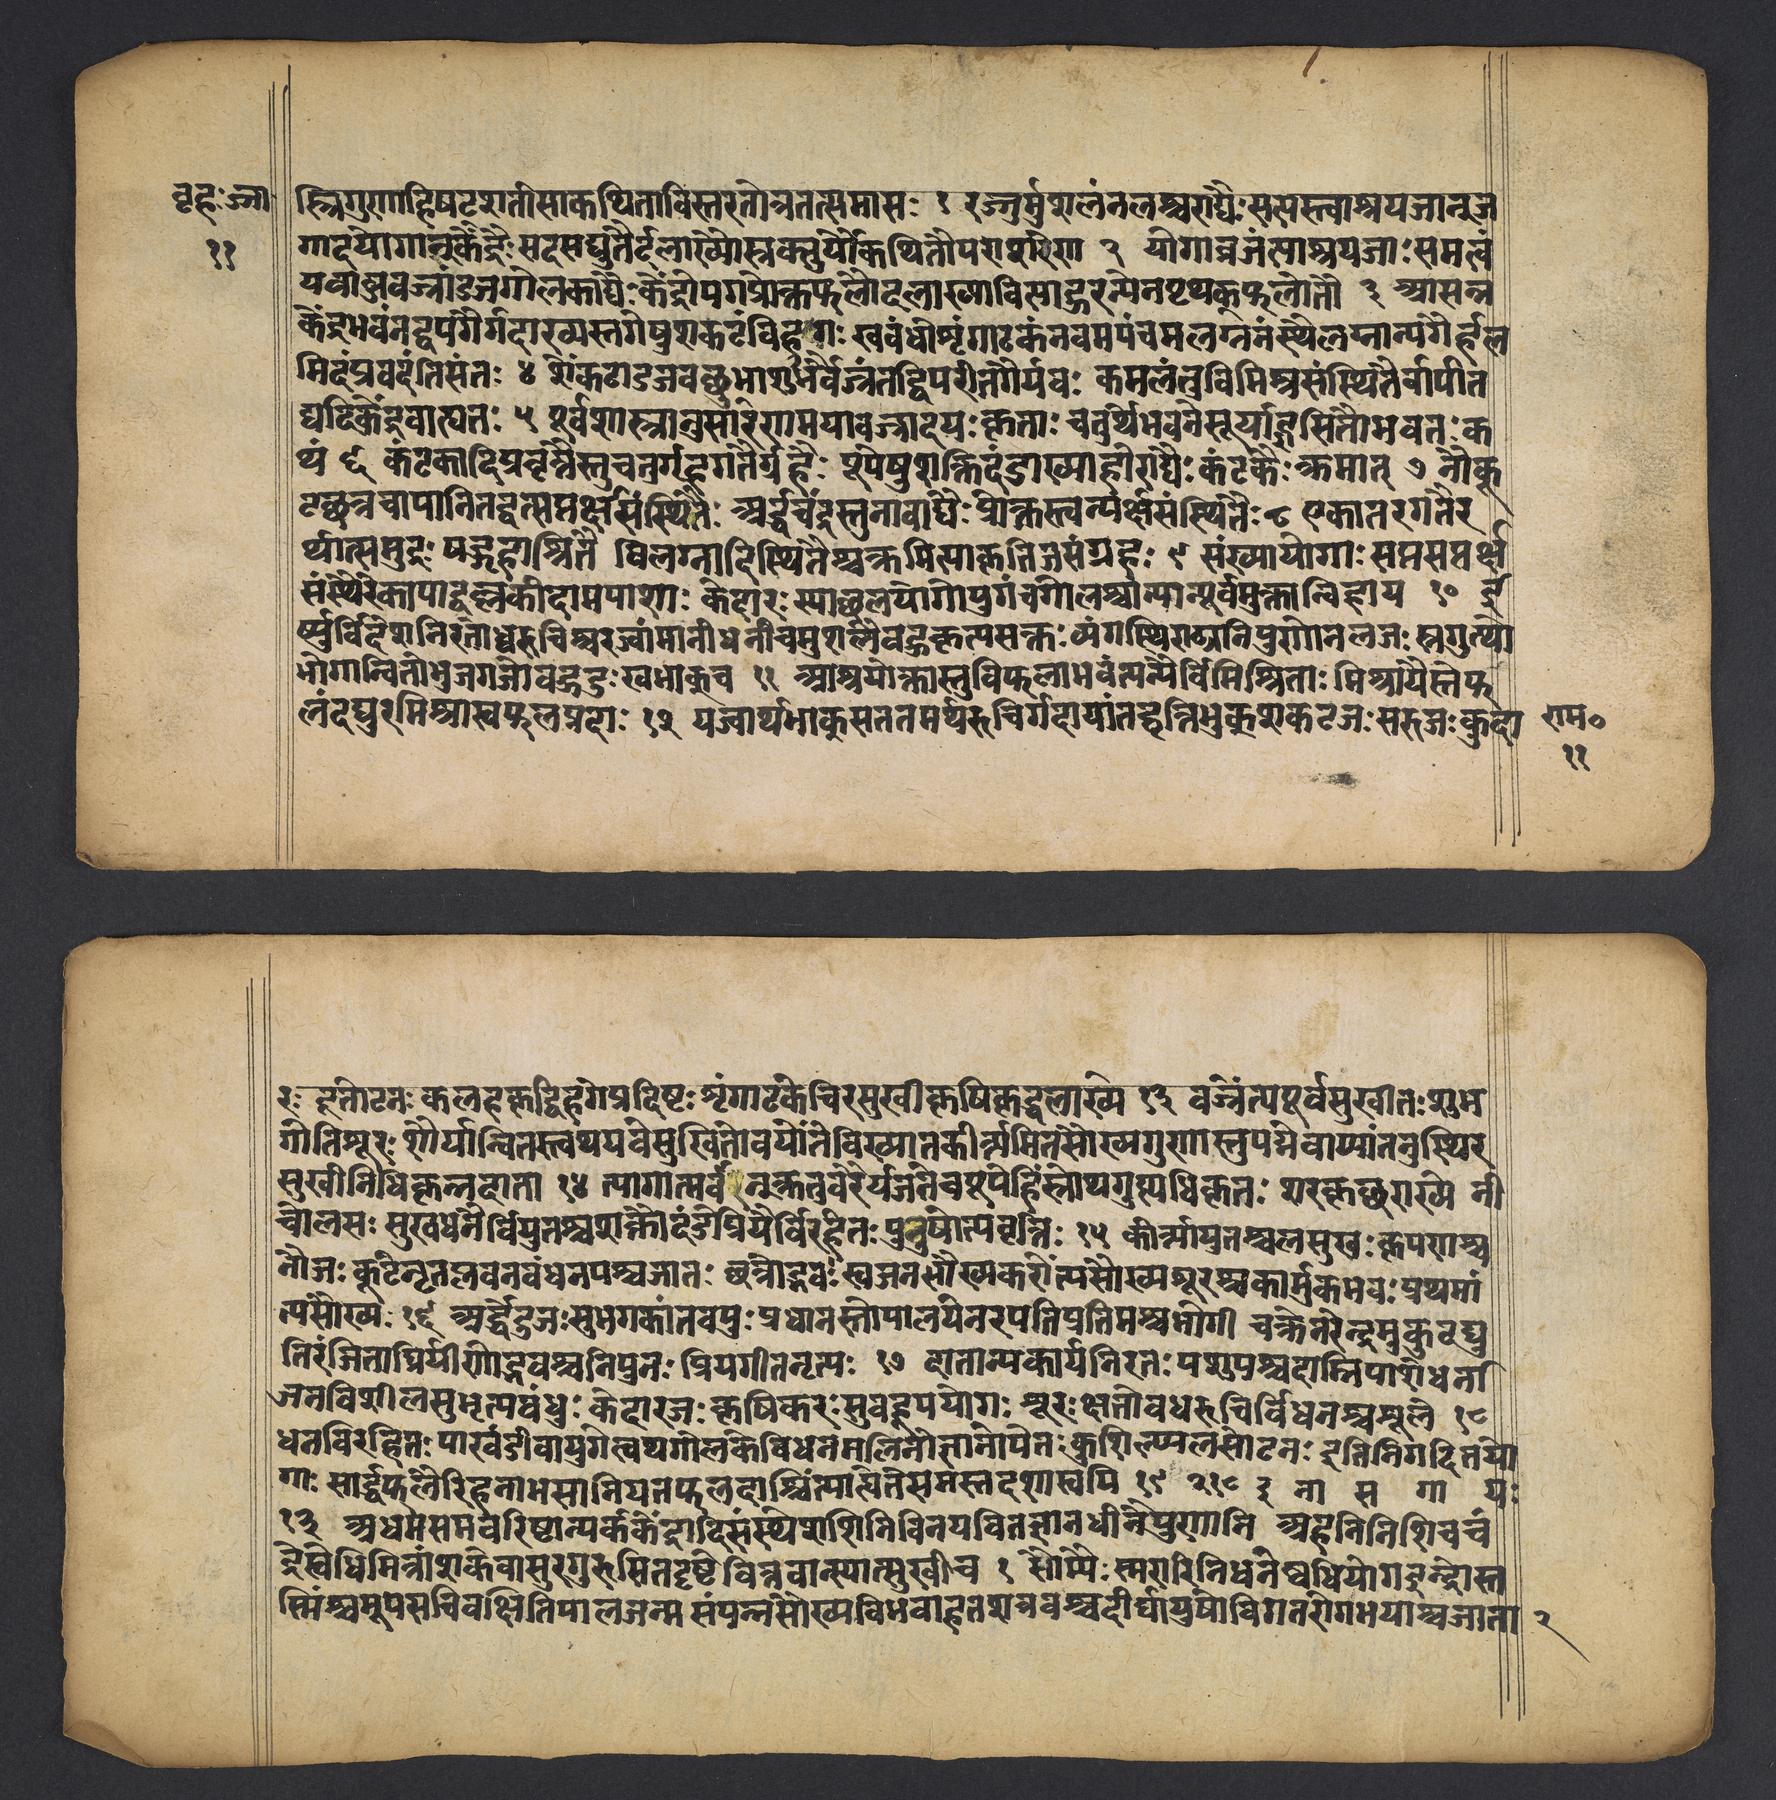 बृहः ज्जा
११
स्त्रिगुणाद्विषटशतीसाकथिताविस्तरतोत्रतत्समासः १ रज्जुर्मुशलंनलश्चराद्यैःसत्यस्त्वाश्रयजानूज
गादयोगान्केंद्रैःसदसद्युतैर्दलाख्यौस्रक्सर्पौकथितौपराशरेण २ योगाव्रजंत्याश्रयजाःसमत्वं
यवाब्जवज्रांडजगोलकाद्यैःकेंद्रोपगप्रोक्तफलौदलाख्याविसाहुरन्येनपृथक्फलौतौ ३ आसन्न
केंद्रभवनद्वयगैर्गदाख्यस्तगेषुशकटंविहगः खबंधौशृंगाटकंनवमपंचमलग्नसंस्थैलग्नान्यगैर्हल
मिदंप्रवदंतिसंतः ४ शकटांडजवच्छुभाशुभैर्वज्रंतद्विपरीतगैर्यवः कमलंतुविमिश्रसंस्थितैर्वापीत
द्यदिकेंद्रवाह्यतः ५ पूर्वशास्त्रानुसारेणमयावज्रादयः कृताः चतुर्थभवनेसूर्याद्ज्ञसितौभवतः क
थं ६ कंटकादिप्रवृत्तैस्तुचतुर्गृहगतैर्ग्रहैः यूपेषुशक्तिदंडाख्याहोराद्यैः कंटकैः क्रमात् ७ नौकू
टछत्रचापानितद्वत्सप्तर्क्षसंस्थितैः अर्द्धचंद्रस्तुनावाद्यैः प्रोक्तस्त्वन्यर्क्षसंस्थितैः ८ एकांतरगतैर
र्थात्समुद्रः षड्गृहाश्रितै विलग्नादिस्थितैश्चक्रमित्याकृतिजसंग्रहः ९ संख्यायोगाः सप्तसप्तर्क्ष
संस्थैरेकापायाद्वल्लकीदामपाशाः केदारः स्याछूलयोगोयुगंचगोलश्चान्यान्पूर्वमुक्तान्विहाय १० ई
र्ष्युर्विदेशनिरतोध्वरुचिश्चरज्वांमानीधनीचमुशलेबहुकृत्यसक्तः व्यंगस्थिराढ्यनिपुणोनलजःस्रगुत्थो
भोगान्वितोभुजगजोबहुदुःखभाक्च ११ आश्रयोक्तास्तुविफलाभवंत्यन्यैर्विमिश्रिताः मिश्रायैस्तेफ
लंदद्युरमिश्रास्वफलप्रदाः १२ यज्वार्थभाक्सततमर्थरुचिर्गदायांतद्वृत्तिभुक्शकटजः सरुजः कुदा
राम०
११
रः दूतोटनः कलहकृद्विहगेप्रदिष्टः शृंगाटकेचिरसुखीकृषिकृद्धलाख्ये १३ वज्रेंत्यपूर्वसुखीतःशुभ
गोतिशूरः शौर्यान्वितस्त्वथयवेसुखितोवयोंतेविख्यातकीर्त्यमितसौख्यगुणस्तुपद्मेवाप्यांतनुस्थिर
सुखीनिधिकृन्नदाता १४ त्यागात्मवान्क्रतुवरैर्यजतेचयूपेहिंस्रोथगुप्त्यधिकृतः शरकृच्छराख्ये नी
चोलसः सुखधनैर्वियुतश्चशक्तौदंडेप्रियैर्विरहितः पुरुषोंत्यवृत्तिः १५ कीर्त्यायुतश्चलसुखः कृपणश्च
नौजः कूटेनृतलवनबंधनपश्चजातः छत्रोद्भवः स्वजनसौख्यकरोंत्यसौख्यशूरश्चकार्मुकभवः प्रथमां
त्यसौख्यः १६ अर्द्धेंदुजःसुभगकांतवपुः प्रधानस्तोयालयेनरपतिप्रतिमश्चभोगी चक्रेनरेन्द्रमुकुटद्यु
तिरंजितांघ्रिर्वीणोद्भवश्चनिपुनः प्रियगीतनृत्यः १७ दातान्यकार्यनिरतः पशुपश्चदाम्निपाशेधना
र्जनविशीलसुभृत्यबंधुः केदारजः कृषिकरः सुबहूपयोगः शूरः क्षतोवधरुचिर्विधनश्चशूले १८
धनविरहितः पाखंडीवायुगेत्वथगोलकेविधनमलिनोज्ञानोपेतः कुशिल्प्यलसोटनः इतिनिगदितायो
गाः सार्द्धंफलैरिहनाभसानियतफलदाश्चिंत्याह्येतेसमस्तदशास्वपि १९ २१८ इ ना स गा यः
१३ अधमसमवरिष्टान्यर्ककेंद्रादिसंस्थेशशिनिविनयवित्तज्ञानधीनैपुणानि अहनिनिशिचचं
द्रेस्वेधिमित्रांशकेवासुरगुरुसितदृष्टेवित्तवान्स्यात्सुखीच १ सौम्यैः स्मरारिनिधनेष्वधियोगइन्दोस्त
स्मिंश्चमूपसचिवक्षितिपालजन्म संपन्नसौख्यविभवाहतशत्रवश्चदीर्घायुषोविगतरोगभयाश्चजाता २